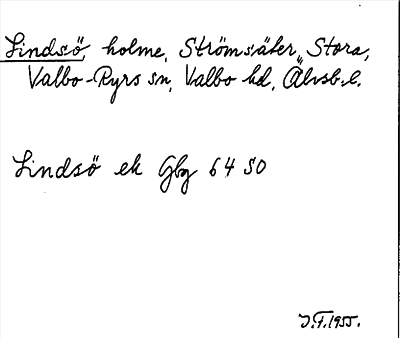 Lindsö, holme, Strömsäter, Stora,
Valbo-Ryrs sn, Valbo hd, Älvsb.l.
Lindsö ek Gbg 64 SO
J.F.1955.